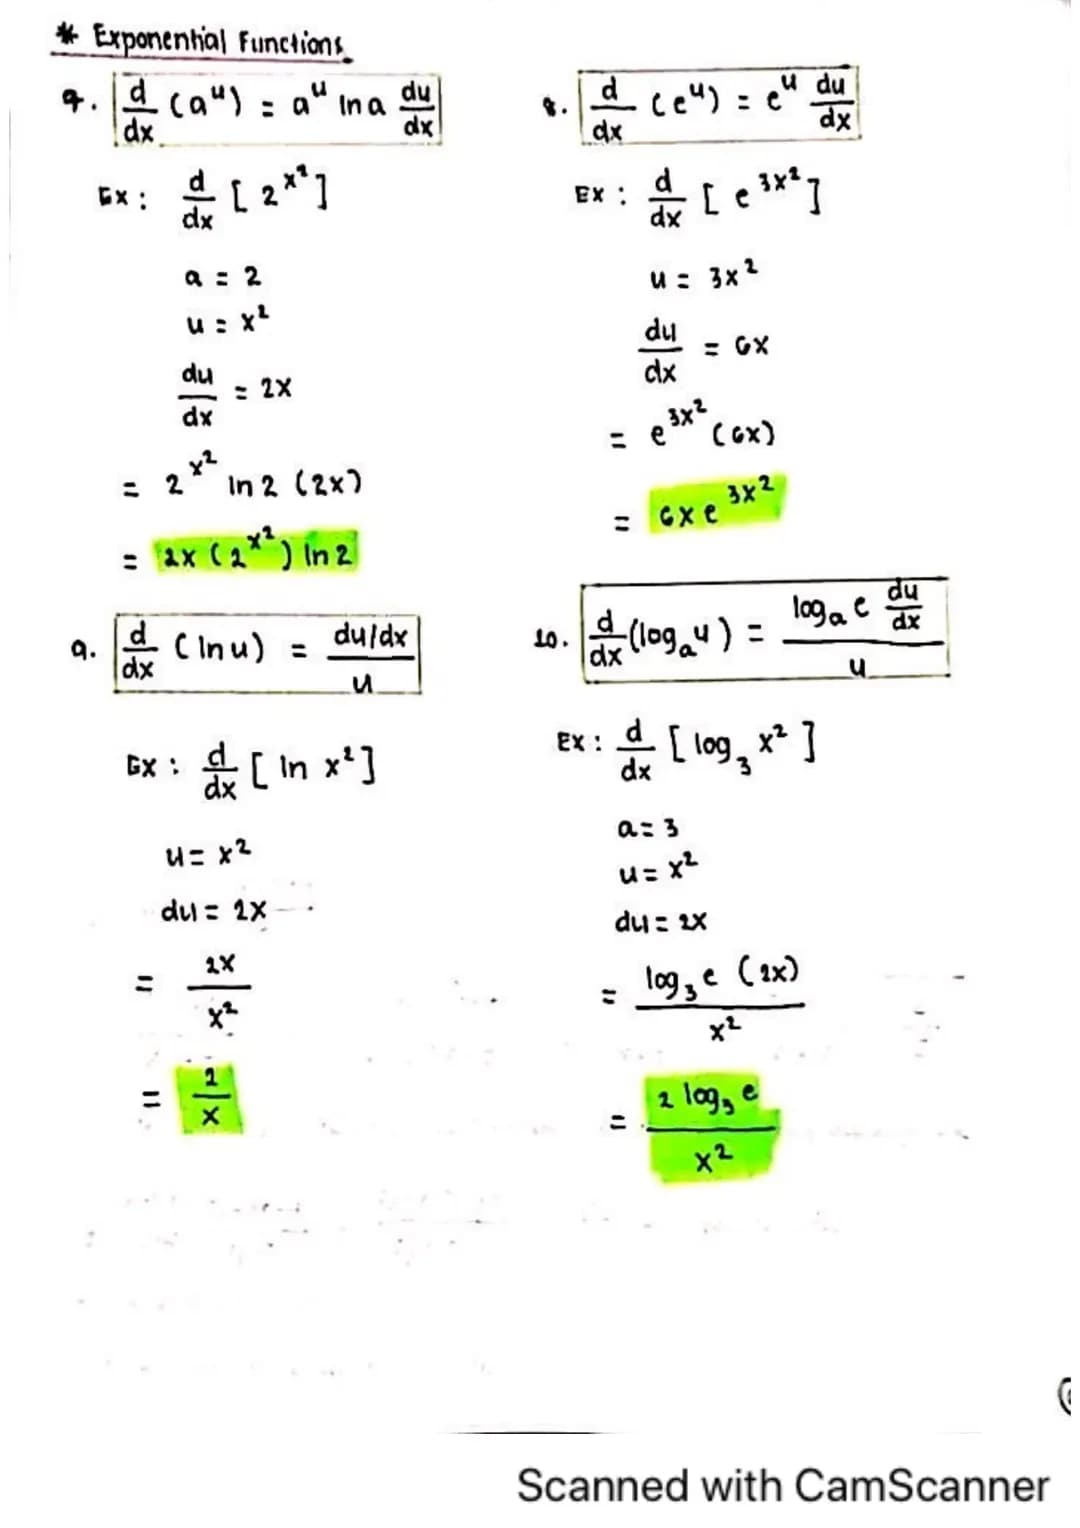 * Exponential Functions
7. d/dx (a^u) = a^u ln a du/dx
Ex : d/dx [ 2^x² ]
a = 2
u = x²
du/dx = 2x
= 2^x² ln 2 (2x)
= 2x ( 2^x² ) ln 2
8. d/dx (e^u) = e^u du/dx
Ex : d/dx [ e^3x² ]
u = 3x²
du/dx = 6x
= e^3x² (6x)
= 6x e^3x²
9. d/dx (ln u) = du/dx / u
Ex : d/dx [ ln x² ]
u = x²
du = 2x
= 2x / x²
= 2 / x
10. d/dx (logₐ u) = logₐ e du/dx / u
Ex : d/dx [ log₃ x² ]
a = 3
u = x²
du = 2x
= log₃ e (2x) / x²
= 2 log₃ e / x²
Scanned with CamScanner